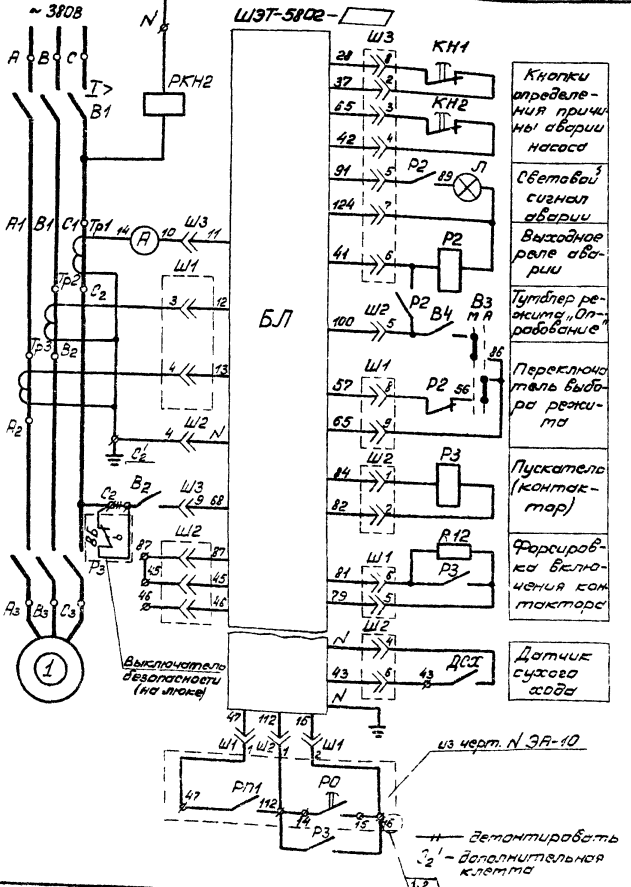 ~ 380В
N
ШЭТ-5802-
A
B
C
I>
В1
РКН2
A1
B1
C1
Тр1
14
А
10
Ш3
11
Тр2
C2
Ш1
3
12
Тр3
B2
4
13
A2
Ш2
4
N
C2'
C2
В2
Ш3
9
68
ВБ
Р3
Ш2
87
87
45
45
46
46
A3
B3
C3
1
Выключатель
безопасности
(на люке)
БЛ
Ш3
28
8
КН1
37
2
65
3
КН2
42
4
91
5
Р2
89
Л
124
7
41
6
Р2
Р2
В3
М А
100
Ш2
5
В4
86
Ш1
57
8
Р2
56
65
9
Ш2
84
1
Р3
82
2
R12
Ш1
81
6
Р3
79
5
Ш2
N
4
43
6
43
ДСХ
N
Кнопки
определе-
ния причи-
ны аварии
насоса
Световой
сигнал
аварии
Выходное
реле ава-
рии
Тумблер ре-
жима „Оп-
робование"
Переключа
тель выбо-
ра режи-
ма
Пускатель
(контак-
тор)
Форсиров-
ка включе-
ния кон-
тактора
Датчик
сухого
хода
47
112
16
Ш1
1
Ш2
1
Ш1
2
из черт. N ЭА-10
РП1
РО
47
112
14
15
16
Р3
демонтировать
C2' - дополнительная
клемма
1,2